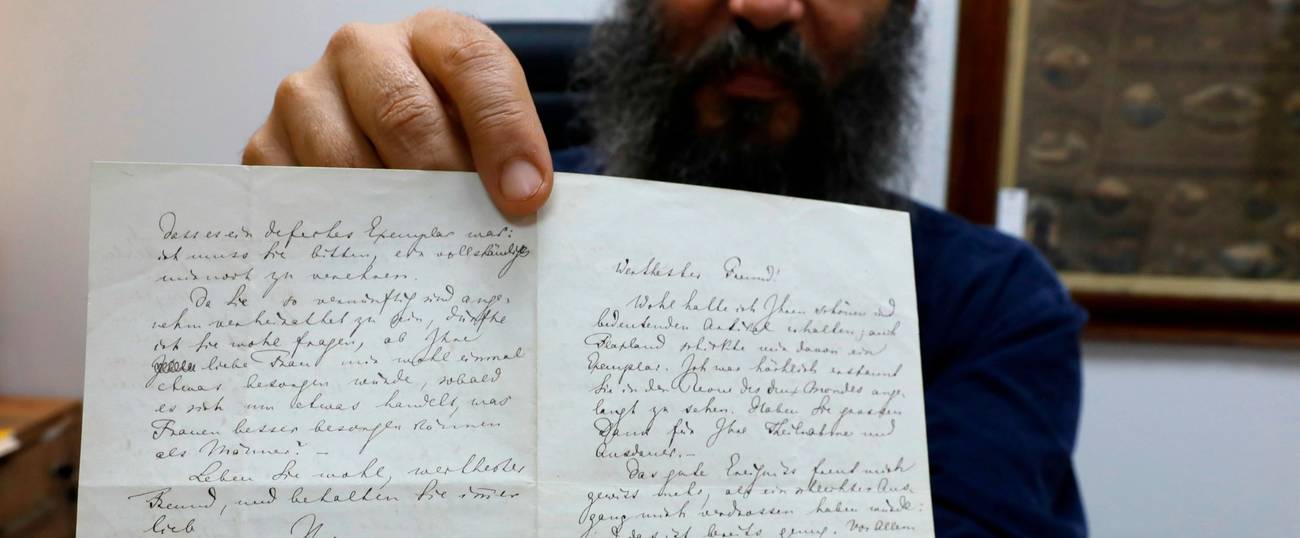 dass es ein defectes Exemplar war:
ich muss Sie bitten, ein vollständiges
mir noch zu verehren.
Da Sie so vernünftig sind ange-
nehm verheirathet zu sein, dürfte
ich Sie wohl fragen, ob Ihre
liebe Frau mir wohl einmal
etwas besorgen würde, sobald
es sich um etwas handelt, was
Frauen besser besorgen können
als Männer? —
Leben Sie wohl, werthester
Freund, und behalten Sie immer
lieb
Werthester Freund!
Wohl habe ich Ihren schönen und
bedeutenden Artikel erhalten; auch
Flaxland schickte mir davon ein
Exemplar. Ich war höchlich erstaunt
Sie in der Revue des deux Mondes ange-
langt zu sehen. Haben Sie grossen
Dank für Ihre Theilnahme und
Ausdauer. —
Das gute Ereigniss freut mich
gewiss mehr, als ein schlechter Aus-
gang mich verdrossen haben würde:
das ist bereits genug. Vor Allem